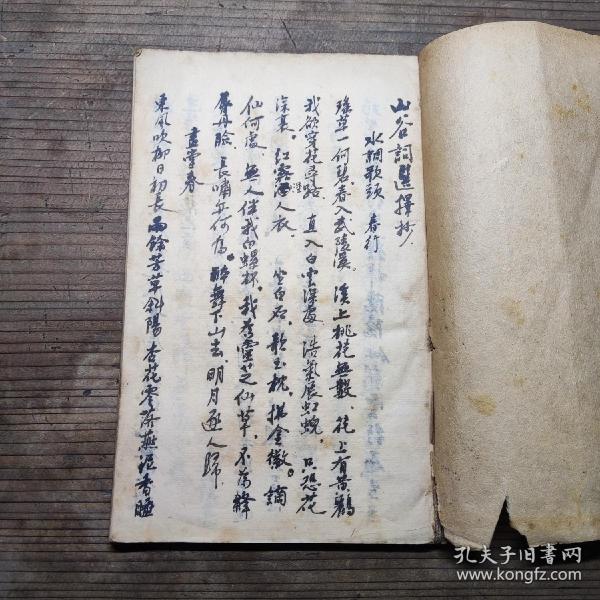 山谷詞選擇抄
水調歌頭 春行
瑤草一何碧,春入武陵溪。溪上桃花無數,花上有黃鸝
我欲穿花尋路 直入白雲深處 浩氣展虹蜺,只恐花
深裏,紅露溼人衣。 坐白石,欹玉枕,拂金徽。謫
仙何處,無人伴我白螺杯,我為靈芝仙草,不為絳
唇丹臉 長嘯亦何為。醉舞下山去 明月逐人歸
畫堂春
東風吹柳日初長 雨餘芳草斜陽 杏花零落燕泥香 睡
孔夫子旧書网
www.kongfz.com